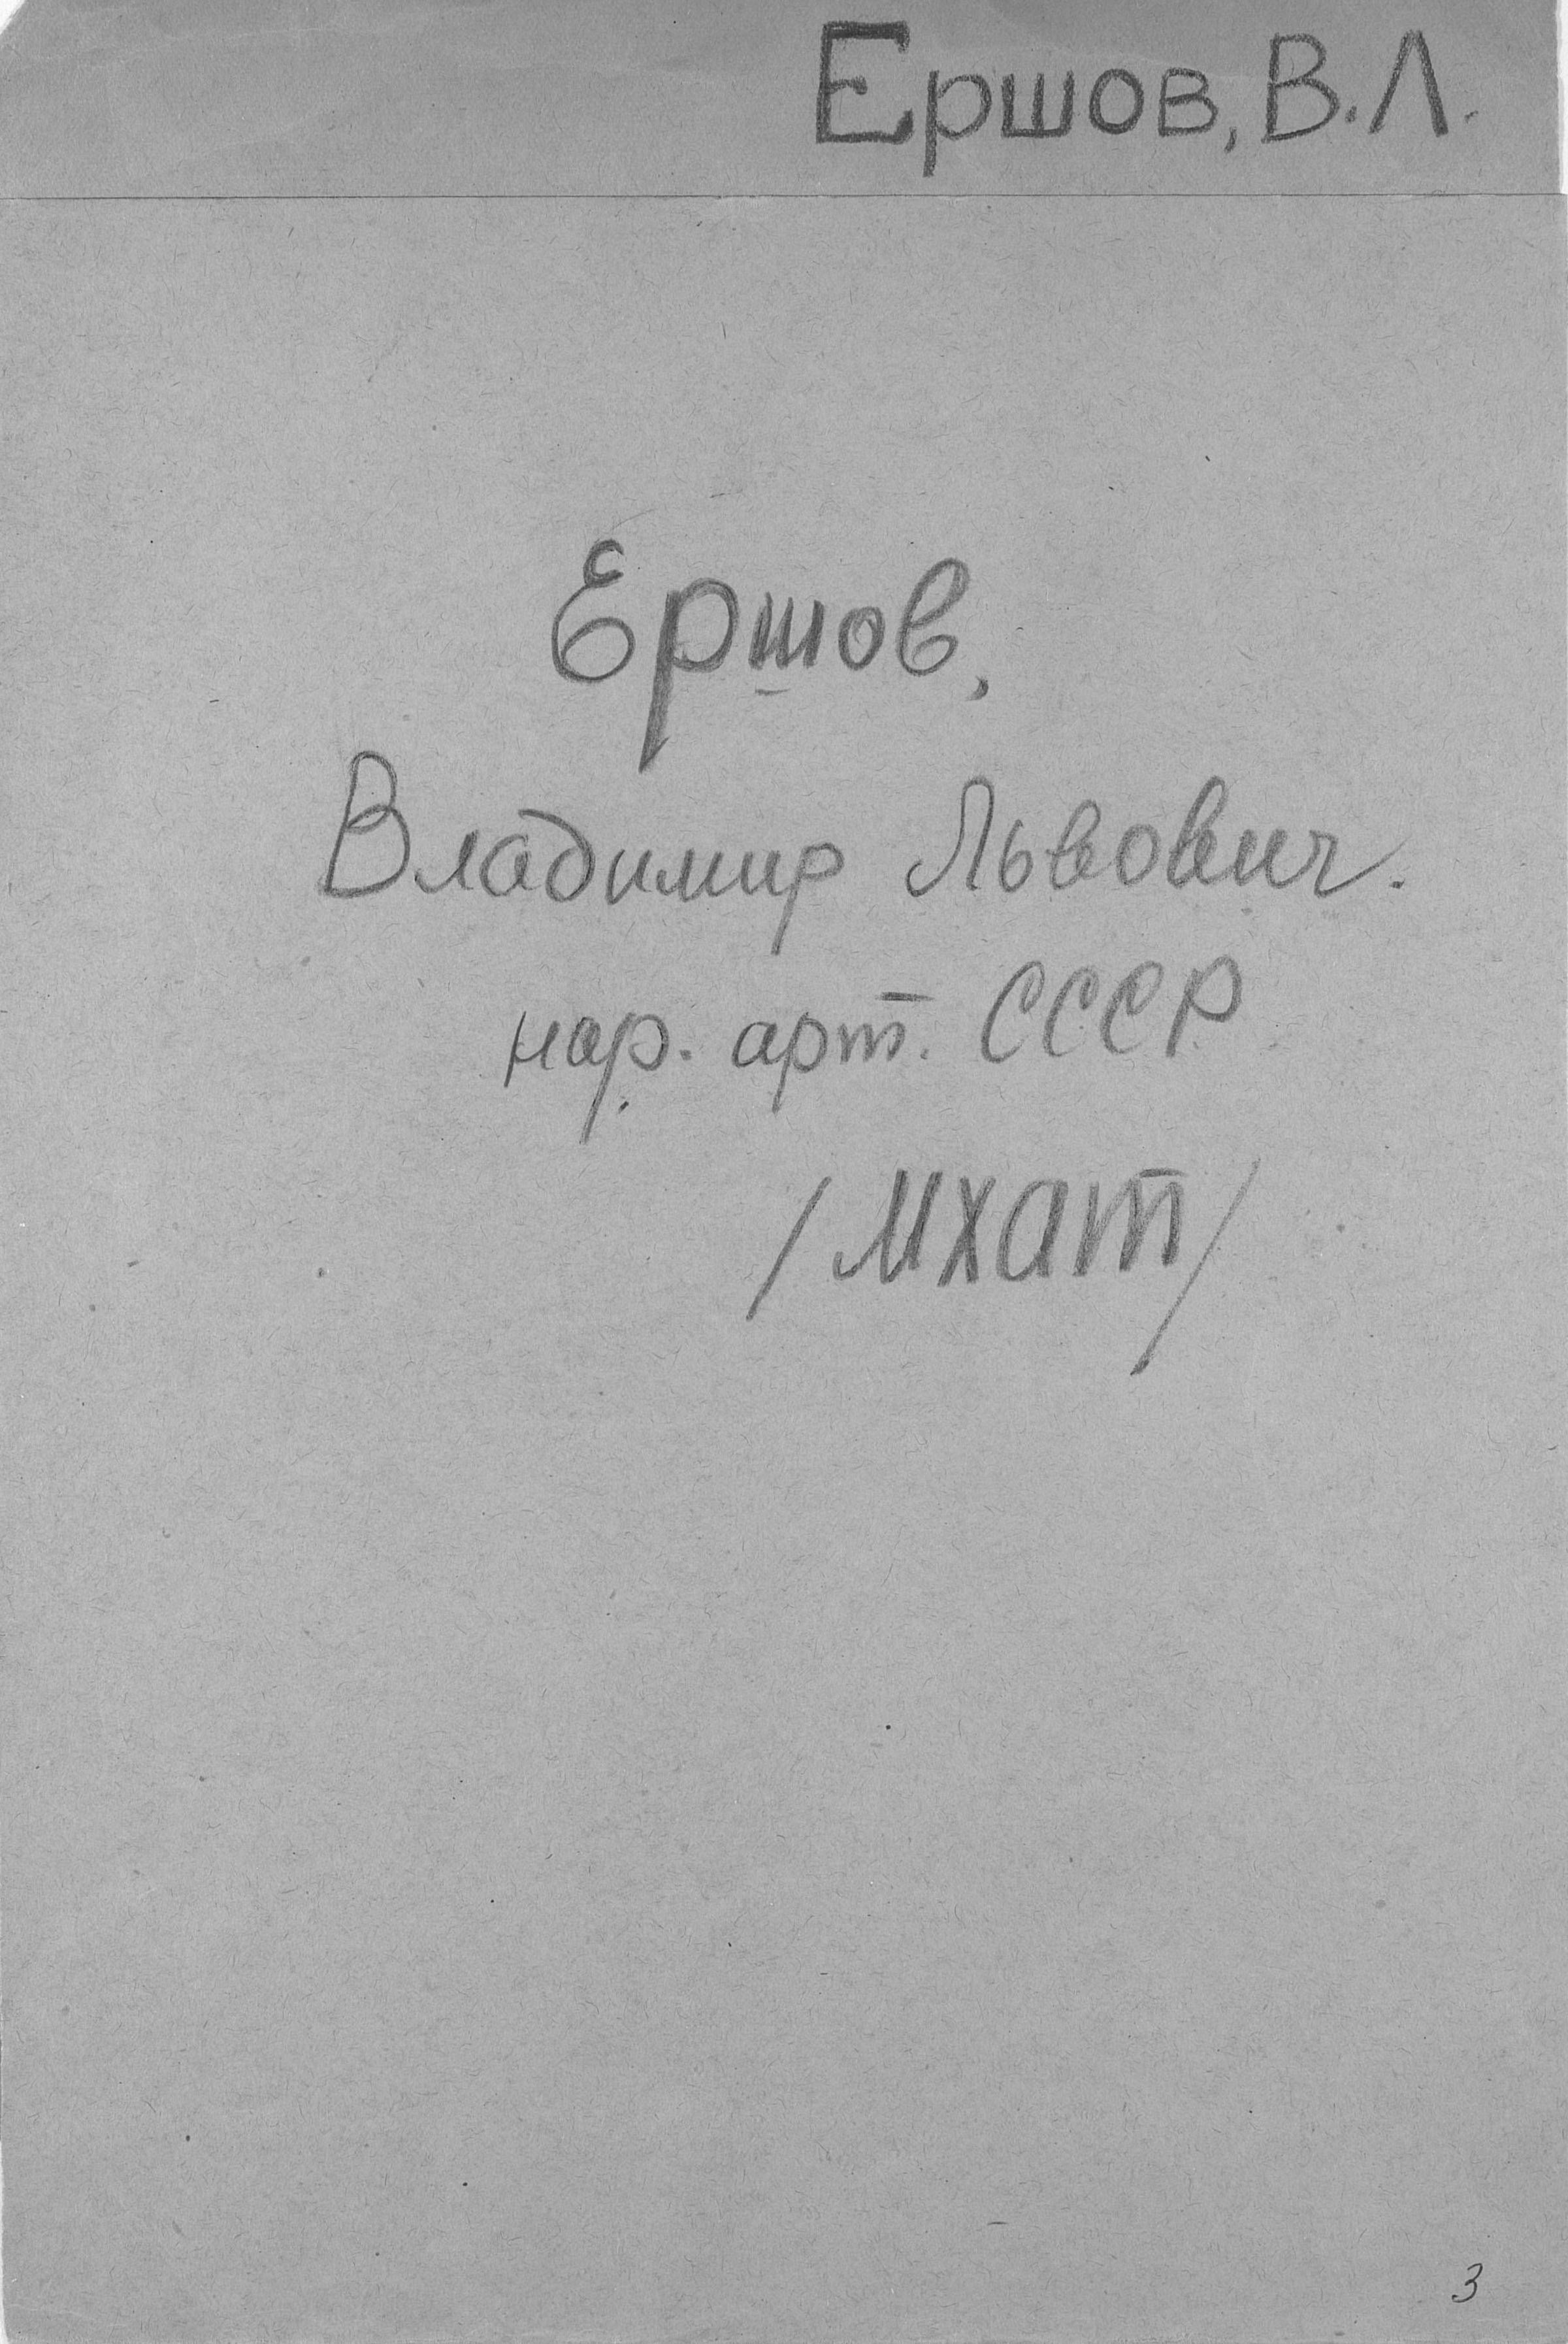 Ершов, В.Л.
Ершов,
Владимир Львович.
нар. арт. СССР
/МХАТ/
3